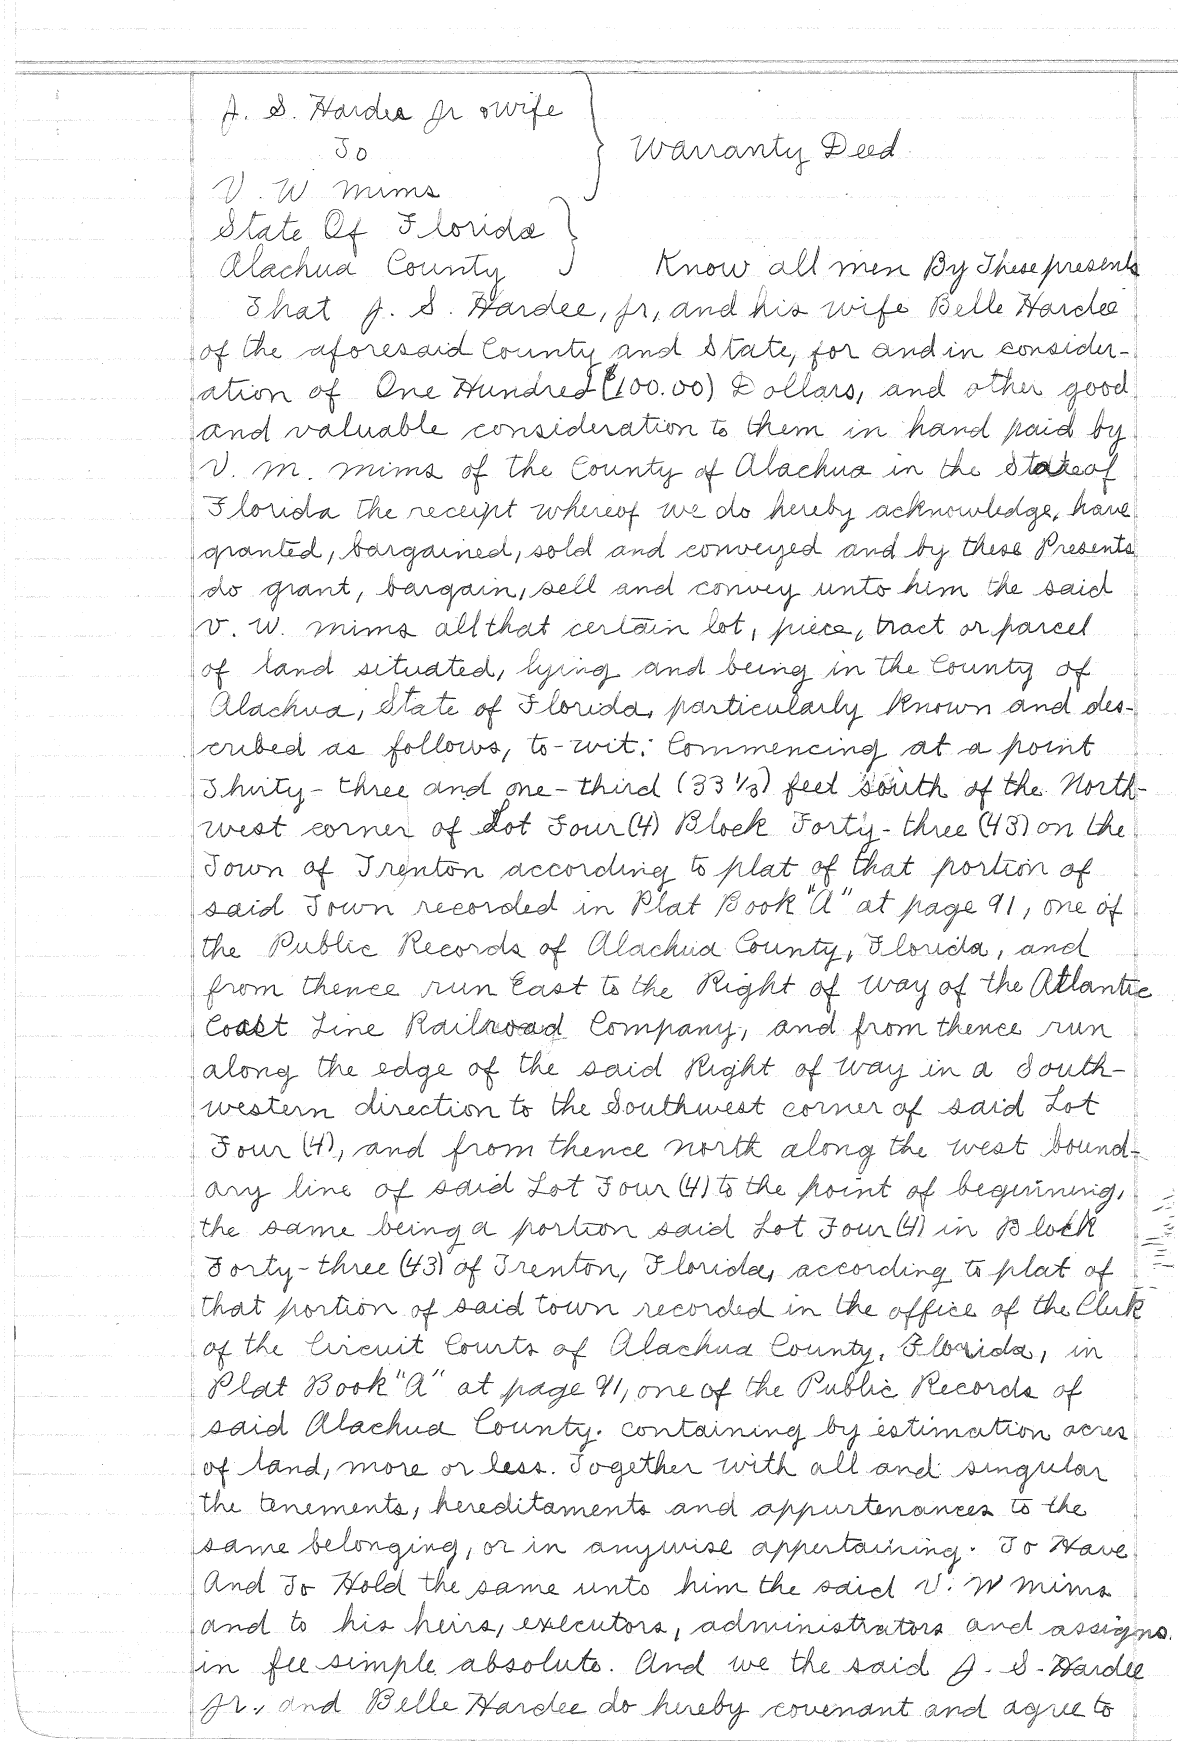 J. S. Hardee Jr & wife
To
Warranty Deed
V. W Mims
State Of Florida
Alachua County
Know all men By These presents
That J. S. Hardee, Jr, and his wife Belle Hardee
of the aforesaid County and State, for and in consider-
ation of One Hundred ($100.00) Dollars, and other good
and valuable consideration to them in hand paid by
V. M. Mims of the County of Alachua in the State of
Florida the receipt whereof we do hereby acknowledge, have
granted, bargained, sold and conveyed and by these Presents
do grant, bargain, sell and convey unto him the said
V. W. Mims all that certain lot, piece, tract or parcel
of land situated, lying and being in the County of
Alachua, State of Florida, particularly known and des-
cribed as follows, to-wit: Commencing at a point
Thirty-three and one-third (33 1/3) feet south of the North-
west corner of Lot Four (4) Block Forty-three (43) on the
Town of Trenton according to plat of that portion of
said Town recorded in Plat Book "A" at page 91, one of
the Public Records of Alachua County, Florida, and
from thence run East to the Right of way of the Atlantic
Coast Line Railroad Company, and from thence run
along the edge of the said Right of way in a South-
western direction to the Southwest corner of said Lot
Four (4), and from thence north along the west bound-
ary line of said Lot Four (4) to the point of beginning,
the same being a portion said Lot Four (4) in Block
Forty-three (43) of Trenton, Florida, according to plat of
that portion of said town recorded in the office of the Clerk
of the Circuit Courts of Alachua County, Florida, in
Plat Book "A" at page 91, one of the Public Records of
said Alachua County. containing by estimation acres
of land, more or less. Together with all and singular
the tenements, hereditaments and appurtenances to the
same belonging, or in anywise appertaining. To Have
And To Hold the same unto him the said V. W Mims
and to his heirs, executors, administrators and assigns.
in fee simple absolute. And we the said J. S. Hardee
Jr., and Belle Hardee do hereby covenant and agree to